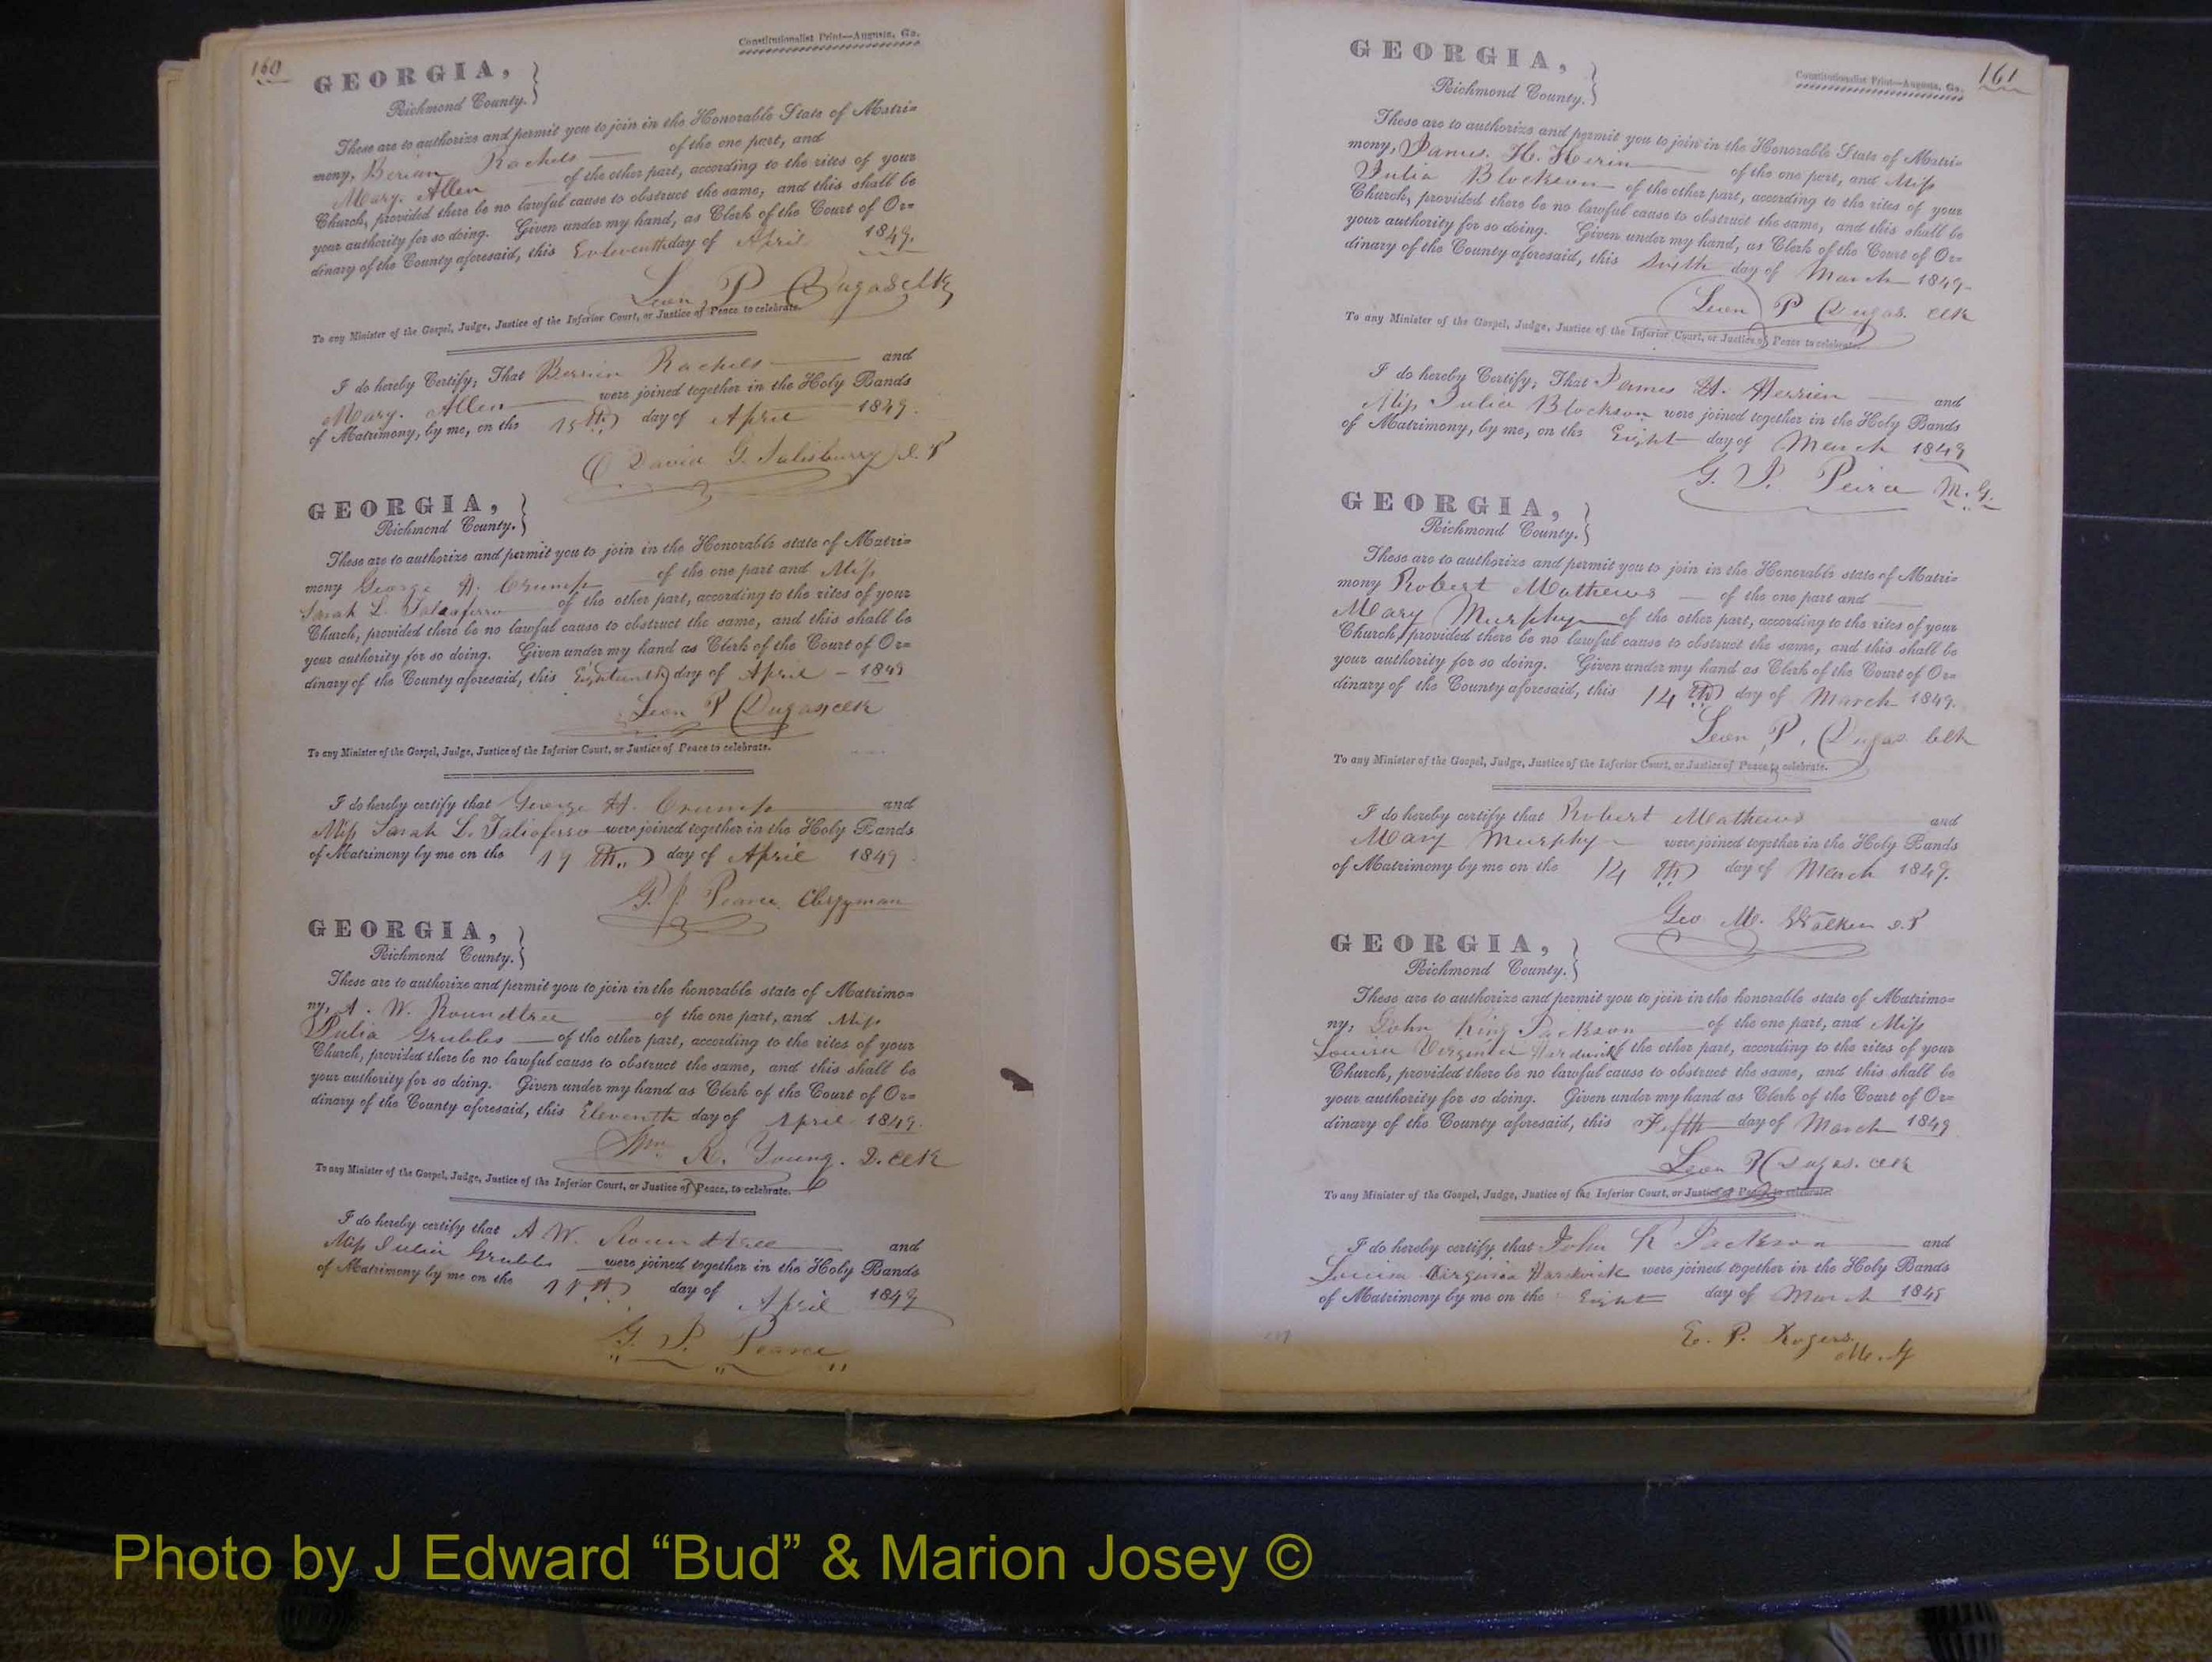 160
Constitutionalist Print—Augusta, Ga.
GEORGIA,
Richmond County.
These are to authorize and permit you to join in the Honorable State of Matri=
mony, Berian Rachels of the one part, and
Mary. Allen of the other part, according to the rites of your
Church, provided there be no lawful cause to obstruct the same, and this shall be
your authority for so doing. Given under my hand, as Clerk of the Court of Or=
dinary of the County aforesaid, this day of April 1849.
Leon P Dugas clk
To any Minister of the Gospel, Judge, Justice of the Inferior Court, or Justice of Peace to celebrate.
I do hereby Certify; That Berrien Rachels and
Mary. Allen were joined together in the Holy Bands
of Matrimony, by me, on the 15th day of April 1849.
David G. Salisbury J.P
GEORGIA,
Richmond County.
These are to authorize and permit you to join in the Honorable state of Matri=
mony George H. Crump of the one part and Miss
Sarah L. Taliaferro of the other part, according to the rites of your
Church, provided there be no lawful cause to obstruct the same, and this shall be
your authority for so doing. Given under my hand as Clerk of the Court of Or=
dinary of the County aforesaid, this Eighteenth day of April - 1849
Leon P Dugas clk
To any Minister of the Gospel, Judge, Justice of the Inferior Court, or Justice of Peace to celebrate.
I do hereby certify that George H. Crump and
Miss Sarah L. Taliaferro were joined together in the Holy Bands
of Matrimony by me on the 19th day of April 1849
G. J. Pearce Clergyman
GEORGIA,
Richmond County.
These are to authorize and permit you to join in the honorable state of Matrimo=
ny, A. W. Roundtree of the one part, and Miss
Julia Grubbs of the other part, according to the rites of your
Church, provided there be no lawful cause to obstruct the same, and this shall be
your authority for so doing. Given under my hand as Clerk of the Court of Or=
dinary of the County aforesaid, this Eleventh day of April 1849.
Wm. R. Young. D. Clk
To any Minister of the Gospel, Judge, Justice of the Inferior Court, or Justice of Peace, to celebrate.
I do hereby certify that A W. Roundtree and
Miss Julia Grubbs were joined together in the Holy Bands
of Matrimony by me on the day of April 1849
G. J. Pearce
GEORGIA,
Richmond County.
Constitutionalist Print—Augusta, Ga.
161
These are to authorize and permit you to join in the Honorable State of Matri=
mony, James. H. Herin of the one part, and Miss
Julia Blockson of the other part, according to the rites of your
Church, provided there be no lawful cause to obstruct the same, and this shall be
your authority for so doing. Given under my hand, as Clerk of the Court of Or=
dinary of the County aforesaid, this day of March 1849
Leon P Dugas. Clk
To any Minister of the Gospel, Judge, Justice of the Inferior Court, or Justice of Peace to celebrate.
I do hereby Certify; That James H. Herrien and
Miss Julia Blockson were joined together in the Holy Bands
of Matrimony, by me, on the Eight day of March 1849
G. J. M.G.
GEORGIA,
Richmond County.
These are to authorize and permit you to join in the Honorable state of Matri=
mony Robert Mathews of the one part and
Mary Murphy of the other part, according to the rites of your
Church, provided there be no lawful cause to obstruct the same, and this shall be
your authority for so doing. Given under my hand as Clerk of the Court of Or=
dinary of the County aforesaid, this 14th day of March 1849.
Leon P. Dugas Clk
To any Minister of the Gospel, Judge, Justice of the Inferior Court, or Justice of Peace to celebrate.
I do hereby certify that Robert Mathews and
Mary Murphy were joined together in the Holy Bands
of Matrimony by me on the 14th day of March 1849.
Geo M. Walker J.P
GEORGIA,
Richmond County.
These are to authorize and permit you to join in the honorable state of Matrimo=
ny, John King Jackson of the one part, and Miss
Louisa Virginia Hardwick of the other part, according to the rites of your
Church, provided there be no lawful cause to obstruct the same, and this shall be
your authority for so doing. Given under my hand as Clerk of the Court of Or=
dinary of the County aforesaid, this Fifth day of March 1849
Leon P Dugas. Clk
To any Minister of the Gospel, Judge, Justice of the Inferior Court, or Justice of Peace to celebrate.
I do hereby certify that John K Jackson and
Louisa Virginia Hardwick were joined together in the Holy Bands
of Matrimony by me on the Eight day of March 1849
E. P. Rogers
M.G
Photo by J Edward “Bud” & Marion Josey ©